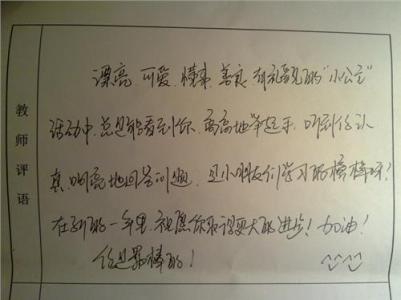 教师评语
漂亮、可爱、懂事、善良、有礼貌的“小公主”
活动中，总是能看到你高高地举起手，听到你认
真、响亮地回答问题，是小朋友们学习的榜样呀！
在新的一年里，祝愿你取得更大的进步！加油！
你是最棒的！